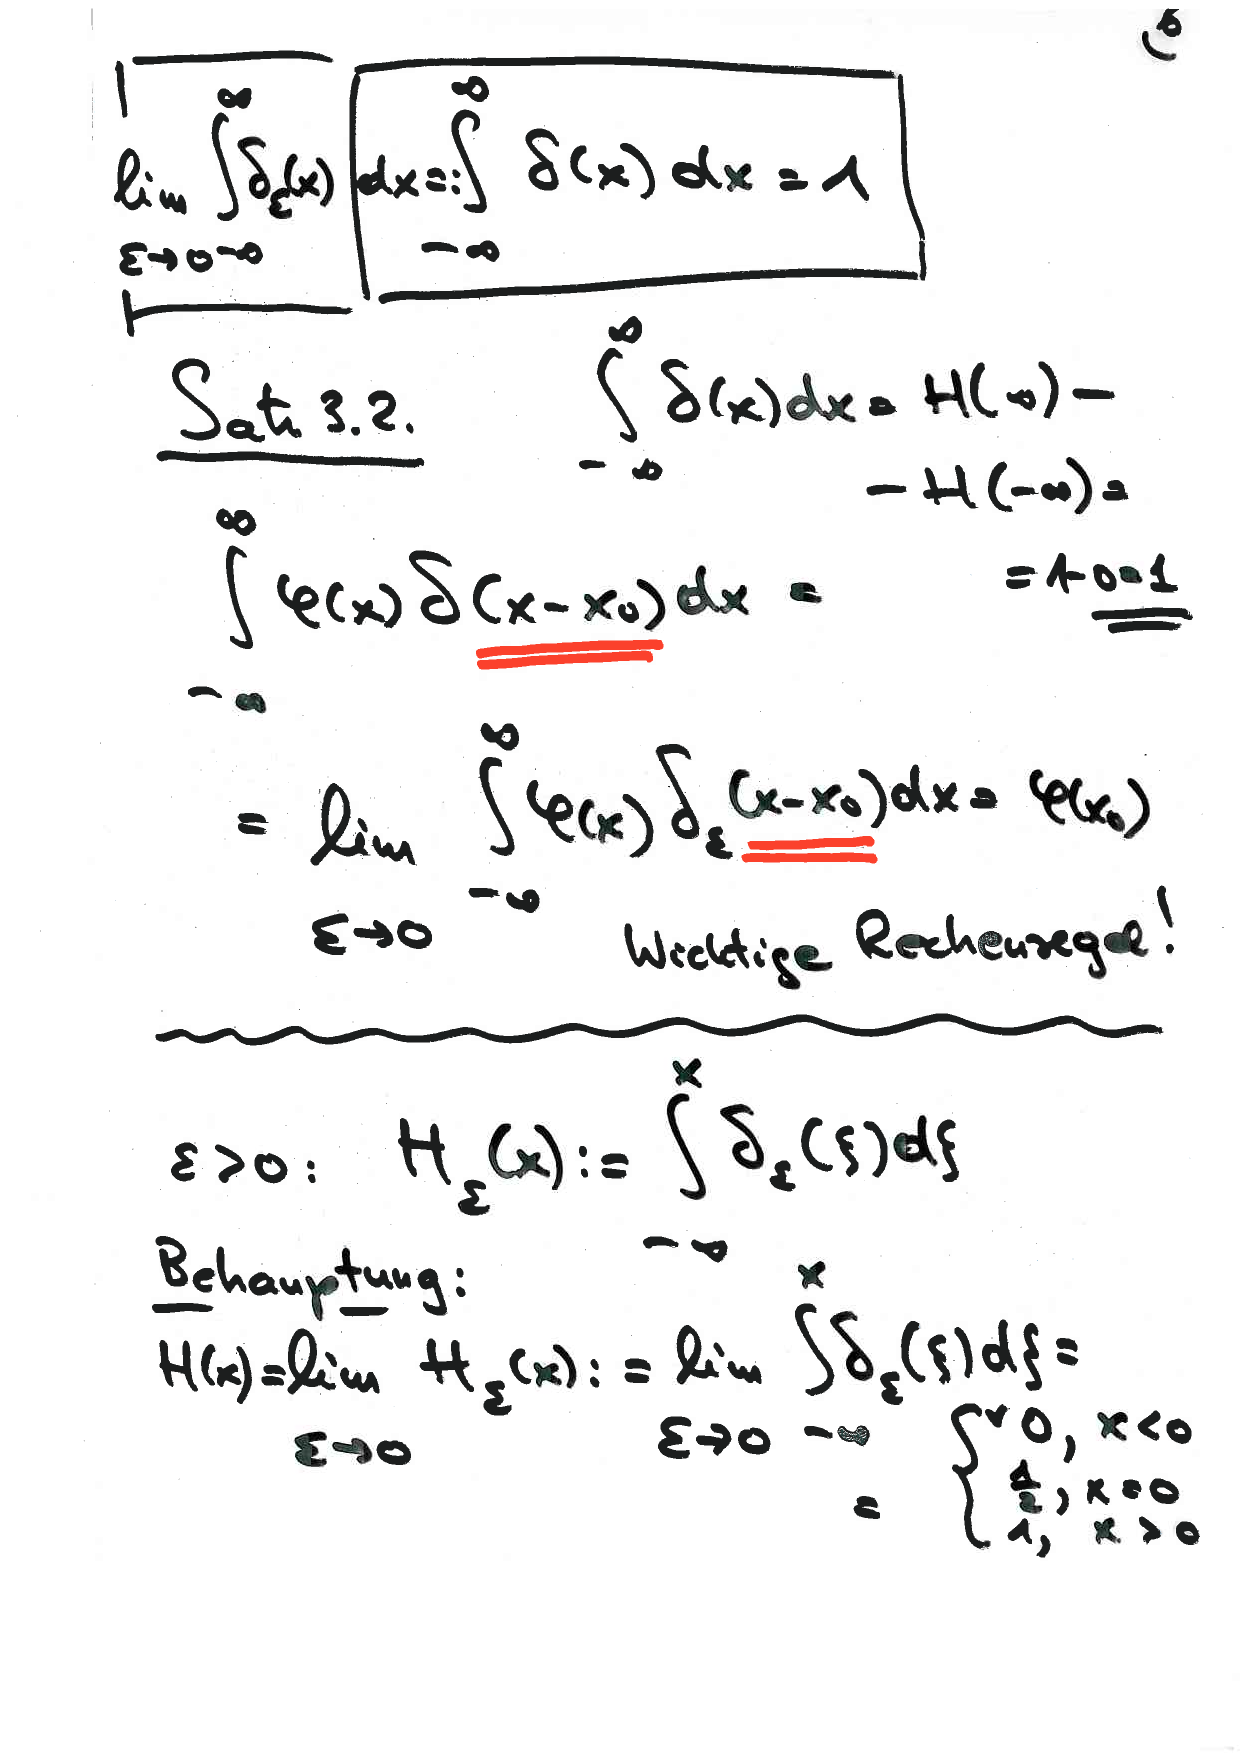 6
lim ∫_{-∞}^{∞} δ_ε(x) dx =: ∫_{-∞}^{∞} δ(x) dx = 1
ε→0
Satz 3.2. ∫_{-∞}^{∞} δ(x) dx = H(∞) -
- H(-∞) =
= 1 - 0 = 1
∫_{-∞}^{∞} φ(x) δ(x-x₀) dx =
= lim ∫_{-∞}^{∞} φ(x) δ_ε(x-x₀) dx = φ(x₀)
ε→0 Wichtige Rechenregel!
ε>0: H_ε(x) := ∫_{-∞}^{x} δ_ε(ξ) dξ
Behauptung:
H(x) = lim H_ε(x) := lim ∫_{-∞}^{x} δ_ε(ξ) dξ =
ε→0 ε→0
= { 0, x<0
1/2, x=0
1, x>0